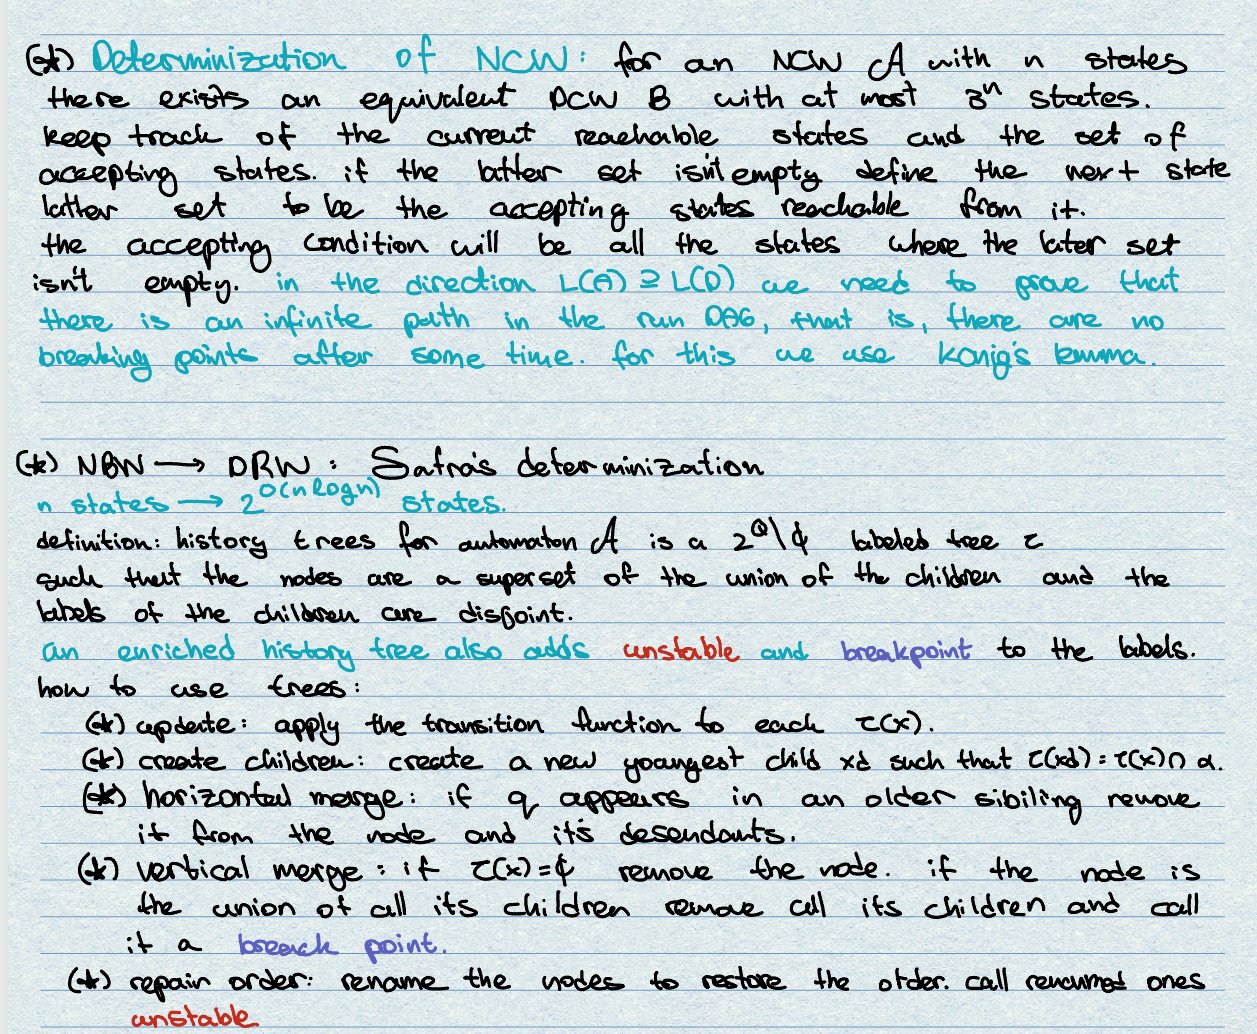 (*) Determinization of NCW: for an NCW A with n states
there exists an equivalent DCW B with at most 3ⁿ states.
keep track of the current reachable states and the set of
accepting states. if the latter set isn't empty define the next state
latter set to be the accepting states reachable from it.
the accepting condition will be all the states where the later set
isn't empty. in the direction L(A) ⊇ L(D) we need to prove that
there is an infinite path in the run DAG, that is, there are no
breaking points after some time. for this we use Konig's lemma.
(*) NBW → DRW : Safra's determinization
n states → 2^O(n log n) states.
definition: history trees for automaton A is a 2^Q\¢ labeled tree τ
such that the nodes are a superset of the union of the children and the
labels of the children are disjoint.
an enriched history tree also adds unstable and breakpoint to the labels.
how to use trees:
(*) update: apply the transition function to each τ(x).
(*) create children: create a new youngest child xd such that τ(xd) = τ(x)∩α.
(*) horizontal merge: if q appears in an older sibiling remove
it from the node and it's desendants.
(*) vertical merge: if τ(x)=¢ remove the node. if the node is
the union of all its children remove all its children and call
it a breack point.
(*) repair order: rename the nodes to restore the order. call renamed ones
unstable